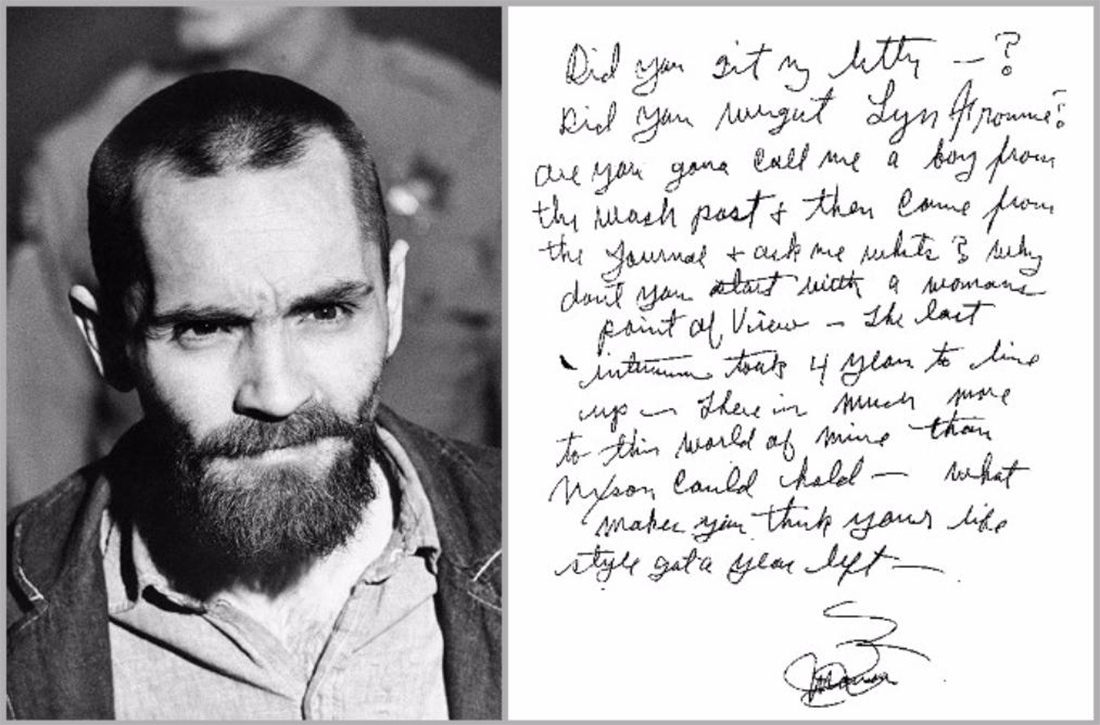 Did you git my letty — ?
Did you rurgut Lyn Fromme?
are you gona call me a boy from
the wash post & then come from
the Journal + ask me whats & why
dont you start with a womans
point of View — The last
took 4 years to line
up — There is much more
to this world of mine than
Nixson could hold — what
makes you think yours life
style gota year left —